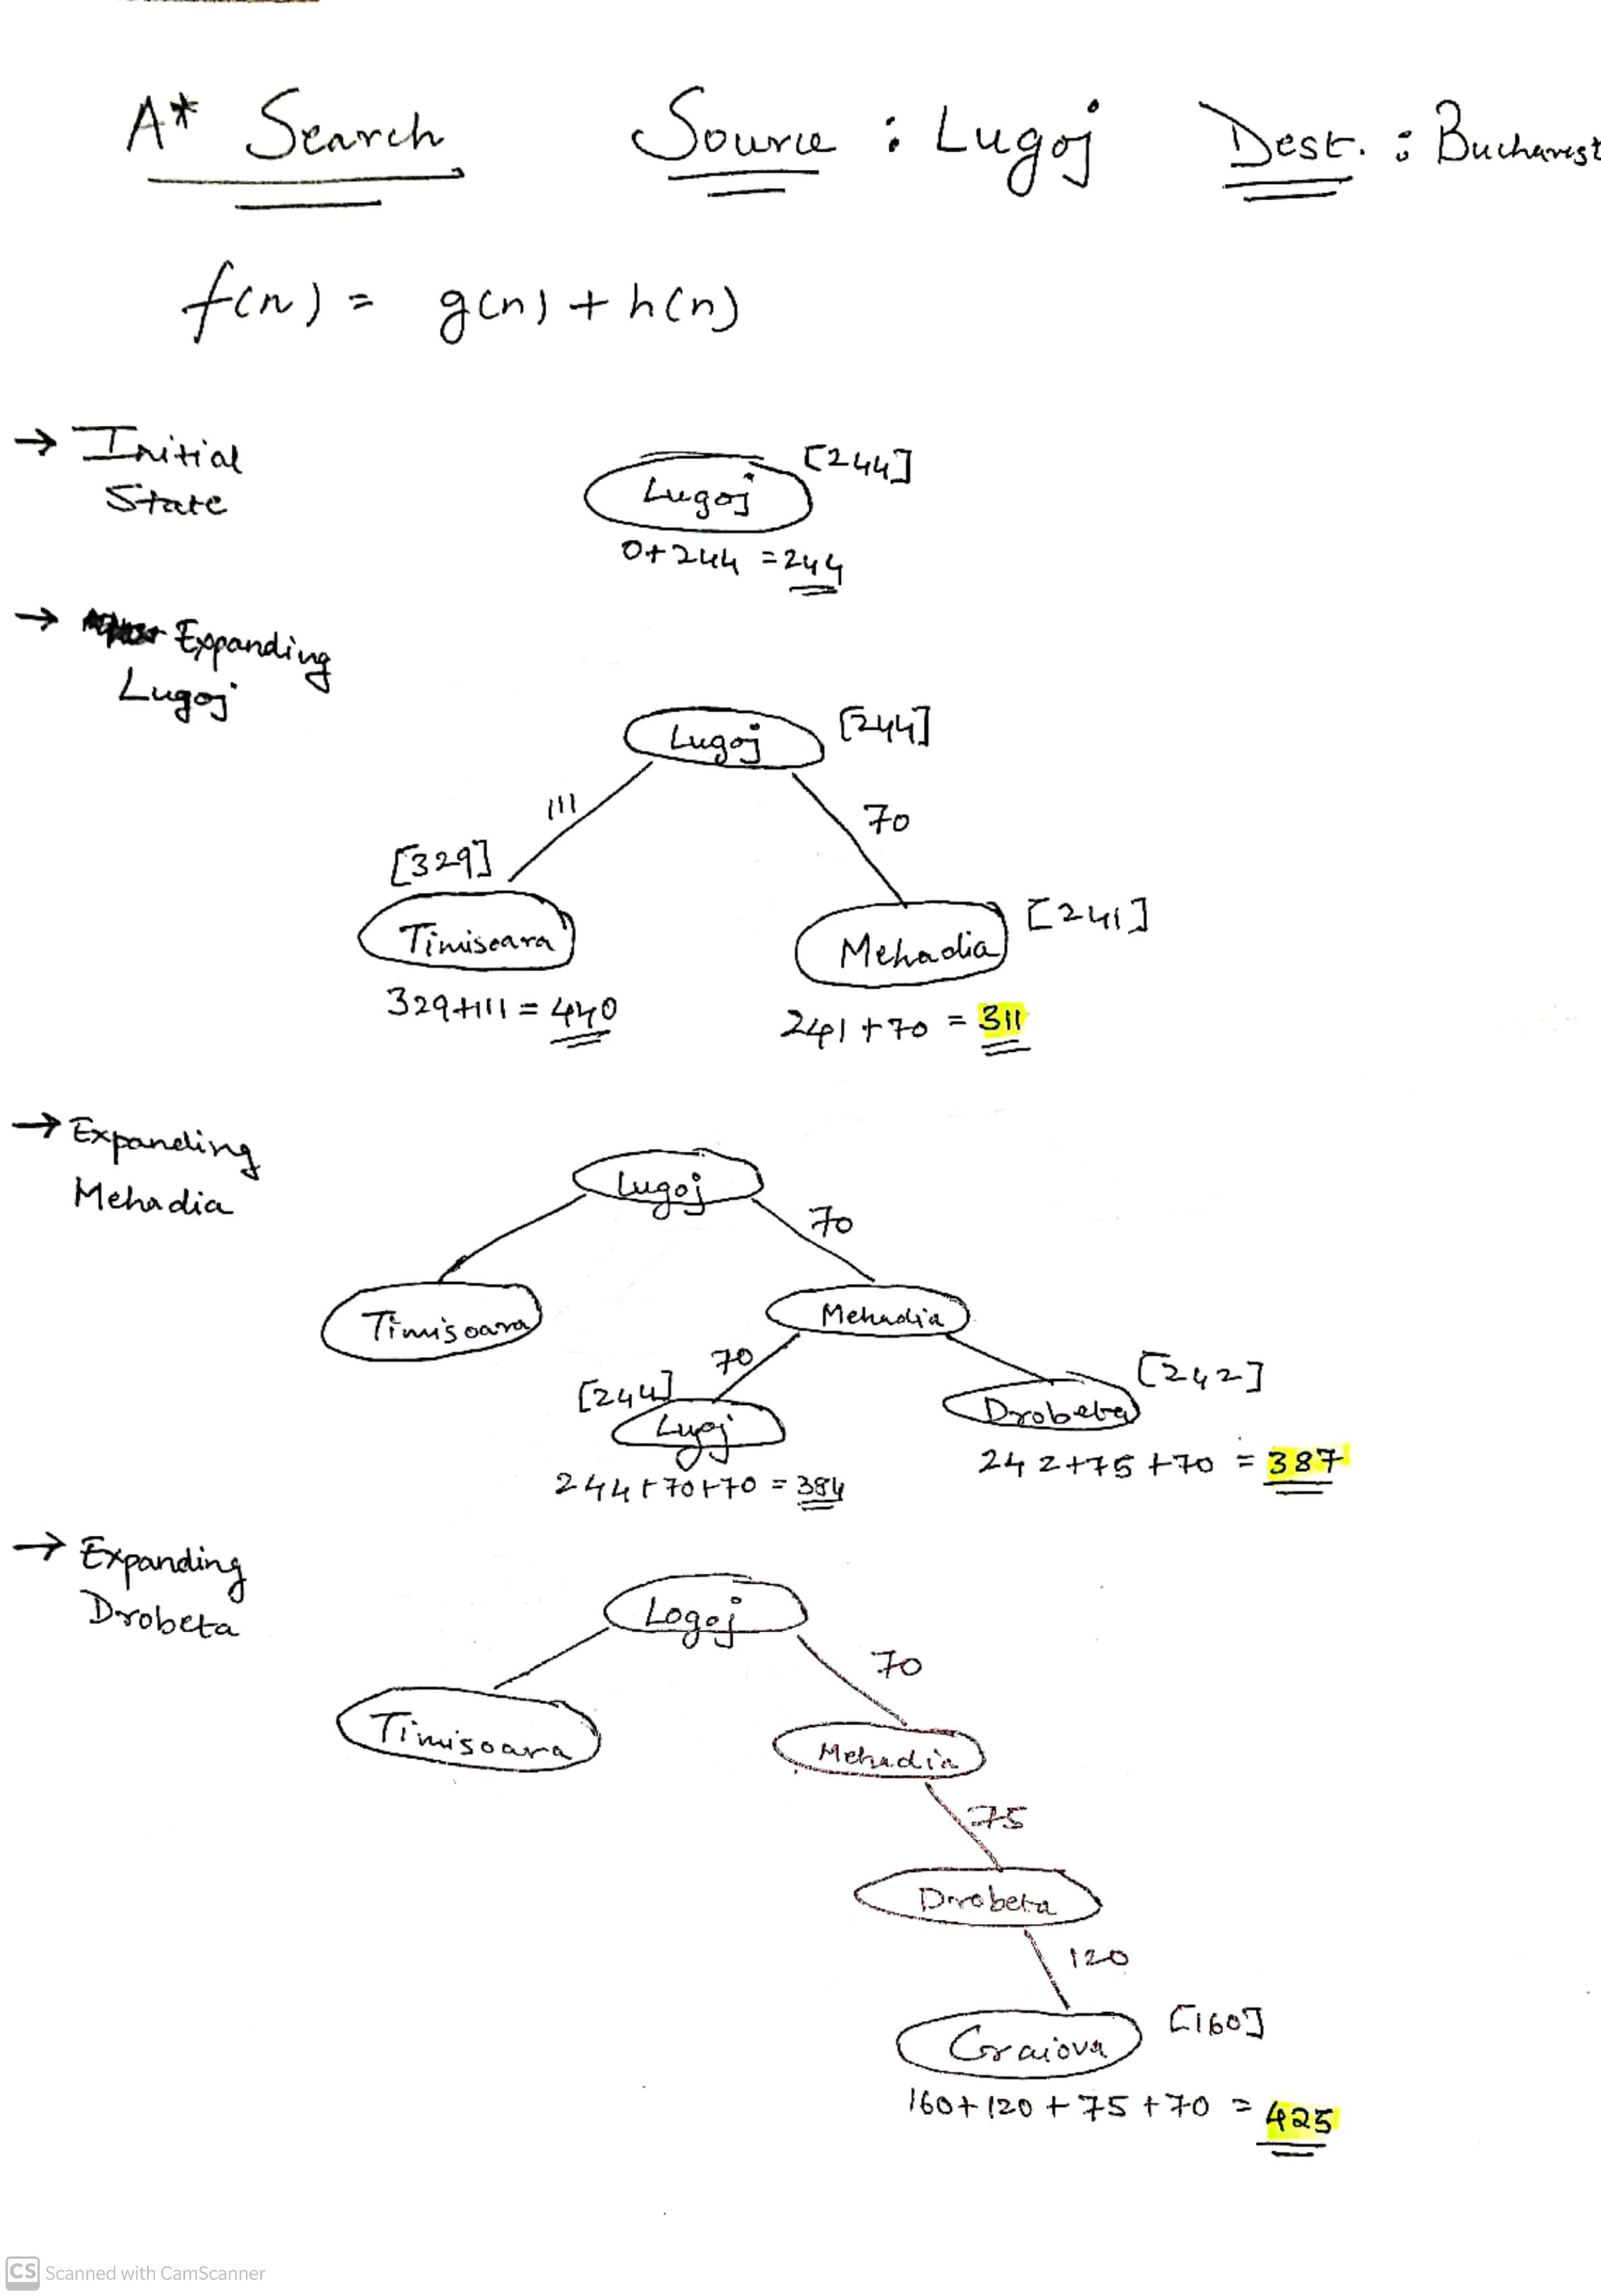 A* Search Source : Lugoj Dest. : Bucharest
f(n) = g(n) + h(n)
→ Initial
State
[244]
Lugoj
0+244 = 244
→ Expanding
Lugoj
Lugoj [244]
111
70
[329]
Timisoara
[241]
Mehadia
329+111 = 440
241+70 = 311
→ Expanding
Mehadia
Lugoj
70
Timisoara
Mehadia
70
[244]
Lugoj
[242]
Drobeta
244+70+70 = 384
242+75+70 = 387
→ Expanding
Drobeta
Logoj
70
Timisoara
Mehadia
75
Drobeta
120
Craiova [160]
160+120+75+70 = 425
CS Scanned with CamScanner